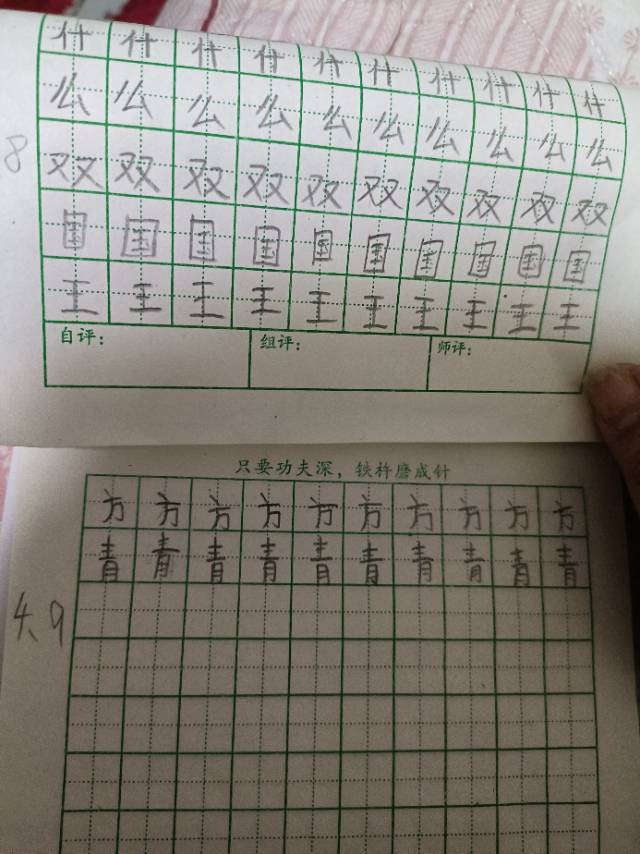 什什什什什什什什什什
么么么么么么么么么么
8
双双双双双双双双双双
国国国国国国国国国国
王王王王王王王王王王
自评： 组评： 师评：
只要功夫深，铁杵磨成针
方方方方方方方方方方
青青青青青青青青青青
4、9